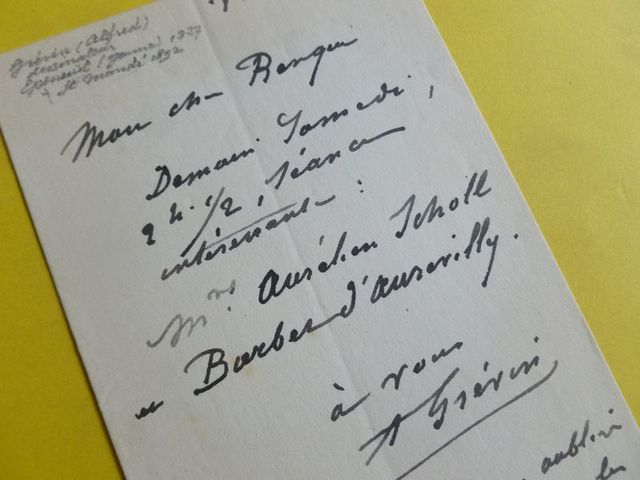 Grévin (Alfred)
dessinateur
Epineuil (Yonne) 1827
+ St Mandé 1892
Mon ch
Demain Samedi,
2 h. 1/2, séance
intéressante :
Mrs Aurélien Scholl
et Barbey d'Aurevilly.
à vous
A Grévin
oublier